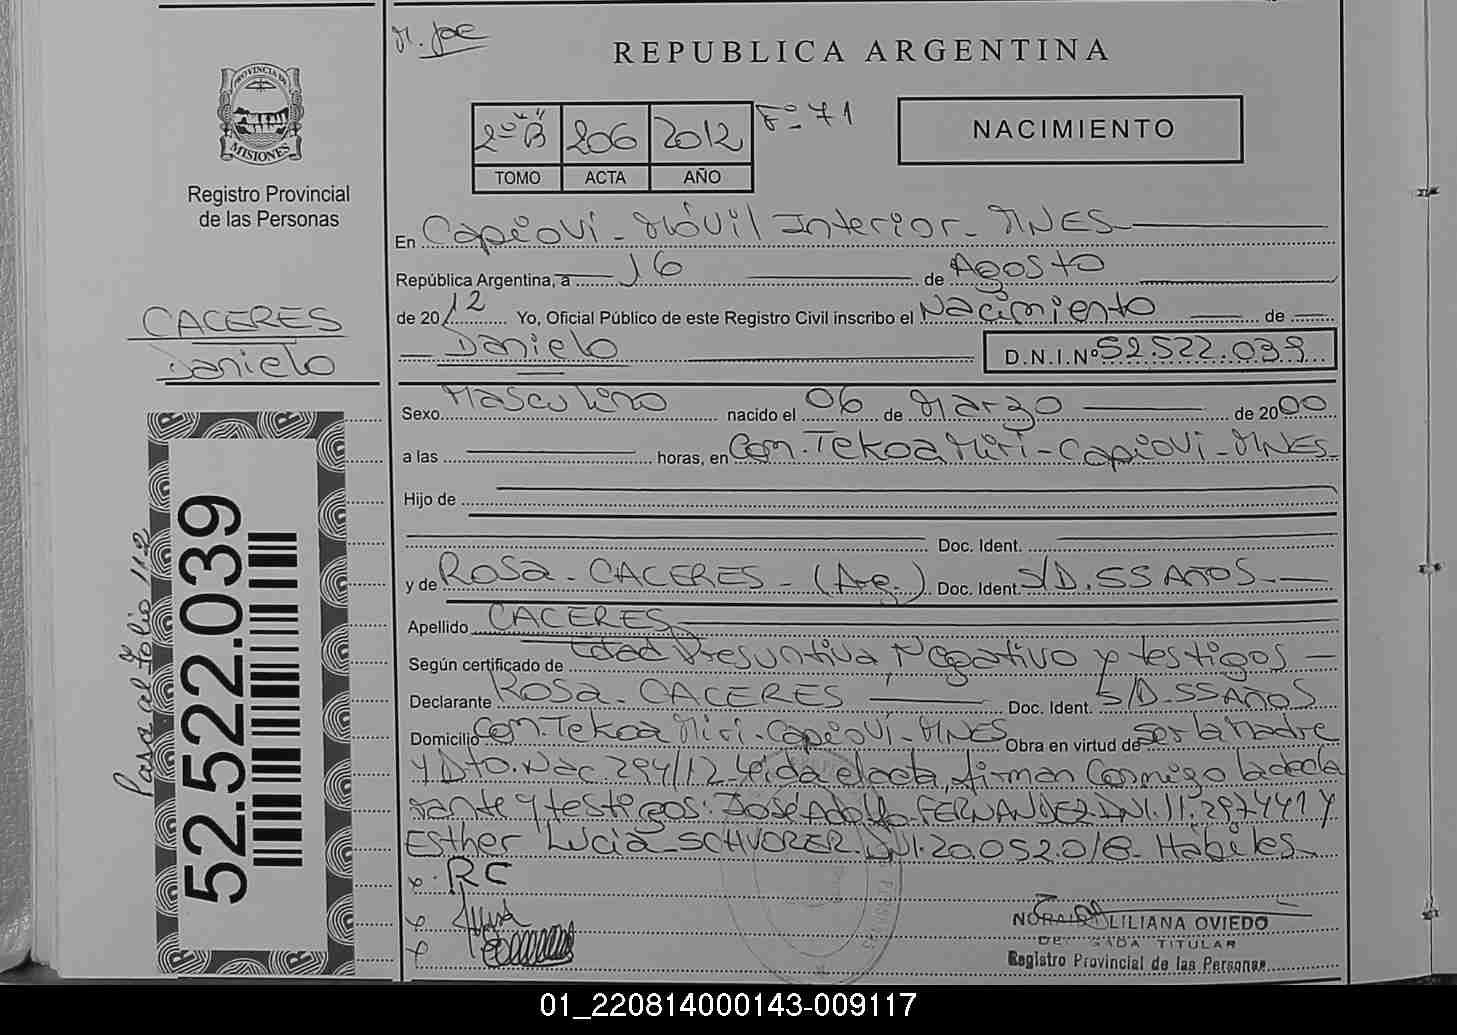 M. Joe
REPUBLICA ARGENTINA
PROVINCIA DE
MISIONES
Registro Provincial
de las Personas
2º "B" 206 2012 Fº 71
TOMO ACTA AÑO
NACIMIENTO
En Capioví - Móvil Interior - MNES
República Argentina, a 16 de Agosto
de 2012 Yo, Oficial Público de este Registro Civil inscribo el Nacimiento de
Danielo D.N.I.Nº 52.522.039
CACERES
Danielo
Sexo Masculino nacido el 06 de Marzo de 2000
a las horas, en Com. Tekoa Miri - Capioví - MNES
Hijo de
Doc. Ident.
y de Rosa - CACERES - (Arg.) Doc. Ident. S/D. 55 AÑOS
Apellido CACERES
Según certificado de Edad Presuntiva Negativo y testigos
Declarante Rosa - CACERES Doc. Ident. S/D. 55 AÑOS
Domicilio Com. Tekoa Miri - Capioví - MNES Obra en virtud de ser la Madre
y Dto. Nac 294/12 - Leida el acta, firman Conmigo la decla
rante y testigos: José Adolfo FERNANDEZ DNI. 11.297.441 y
Esther Lucia - SCHVORER DNI. 20.052.018 - Hábiles
x RC
x
x
NORA LILIANA OVIEDO
DELEGADA TITULAR
Registro Provincial de las Personas
52.522.039
Pasa al folio 112
01_220814000143-009117